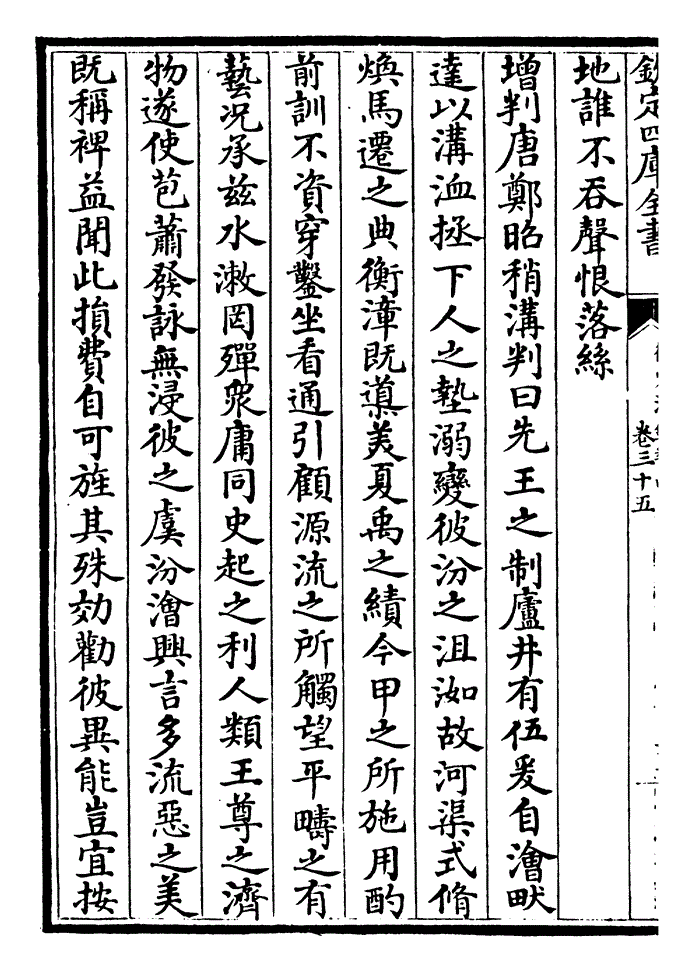 欽定四庫全書
卷三十五
地誰不吞聲恨落絲
增判唐鄭昭稍溝判曰先王之制廬井有伍爰自澮畎
達以溝洫拯下人之墊溺變彼汾之沮洳故河渠式脩
煥馬遷之典衡漳既導美夏禹之績今甲之所施用酌
前訓不資穿鑿坐看通引顧源流之所觸望平疇之有
藝况承兹水潄罔殫衆庸同史起之利人類王尊之濟
物遂使苞蕭發詠無浸彼之虞汾澮興言多流惡之美
既稱裨益聞此損費自可旌其殊効勸彼異能豈宜按